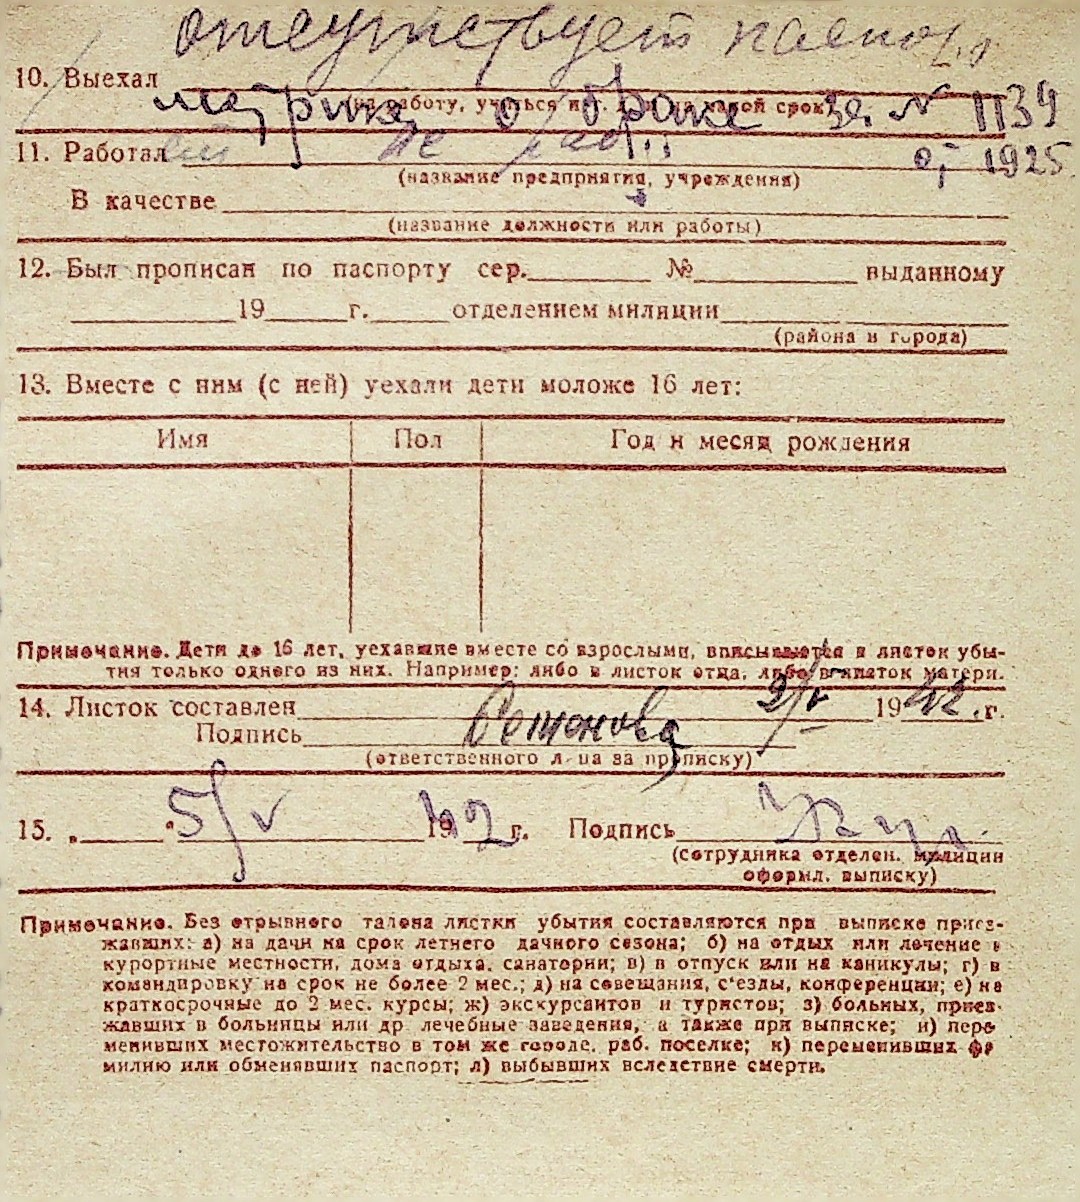 отсутствует паспорт
10. Выехал
(на работу, учиться и т. д., на какой срок)
метрика о браке за № 1139
11. Работал не раб.
от 1925
(название предприятия, учреждения)
В качестве
(название должности или работы)
12. Был прописан по паспорту сер. № выданному
19 г. отделением милиции
(района и города)
13. Вместе с ним (с ней) уехали дети моложе 16 лет:
Имя Пол Год и месяц рождения
Примечание. Дети до 16 лет, уехавшие вместе со взрослыми, вписываются в листок убы-
тия только одного из них. Например: либо в листок отца, либо в листок матери.
14. Листок составлен 2/V 1942 .г.
Подпись Семенова
(ответственного лица за прописку)
15. „ “ 5/V 1942 г. Подпись
(сотрудника отделен. милиции
оформл. выписку)
Примечание. Без отрывного талона листки убытия составляются при выписке приез-
жавших: а) на дачи на срок летнего дачного сезона; б) на отдых или лечение в
курортные местности, дома отдыха, санатории; в) в отпуск или на каникулы; г) в
командировку на срок не более 2 мес.; д) на совещания, с'езды, конференции; е) на
краткосрочные до 2 мес. курсы; ж) экскурсантов и туристов; з) больных, приез-
жавших в больницы или др лечебные заведения, а также при выписке; и) пере
менивших местожительство в том же городе, раб. поселке; к) переменивших фа
милию или обменявших паспорт; л) выбывших вследствие смерти.